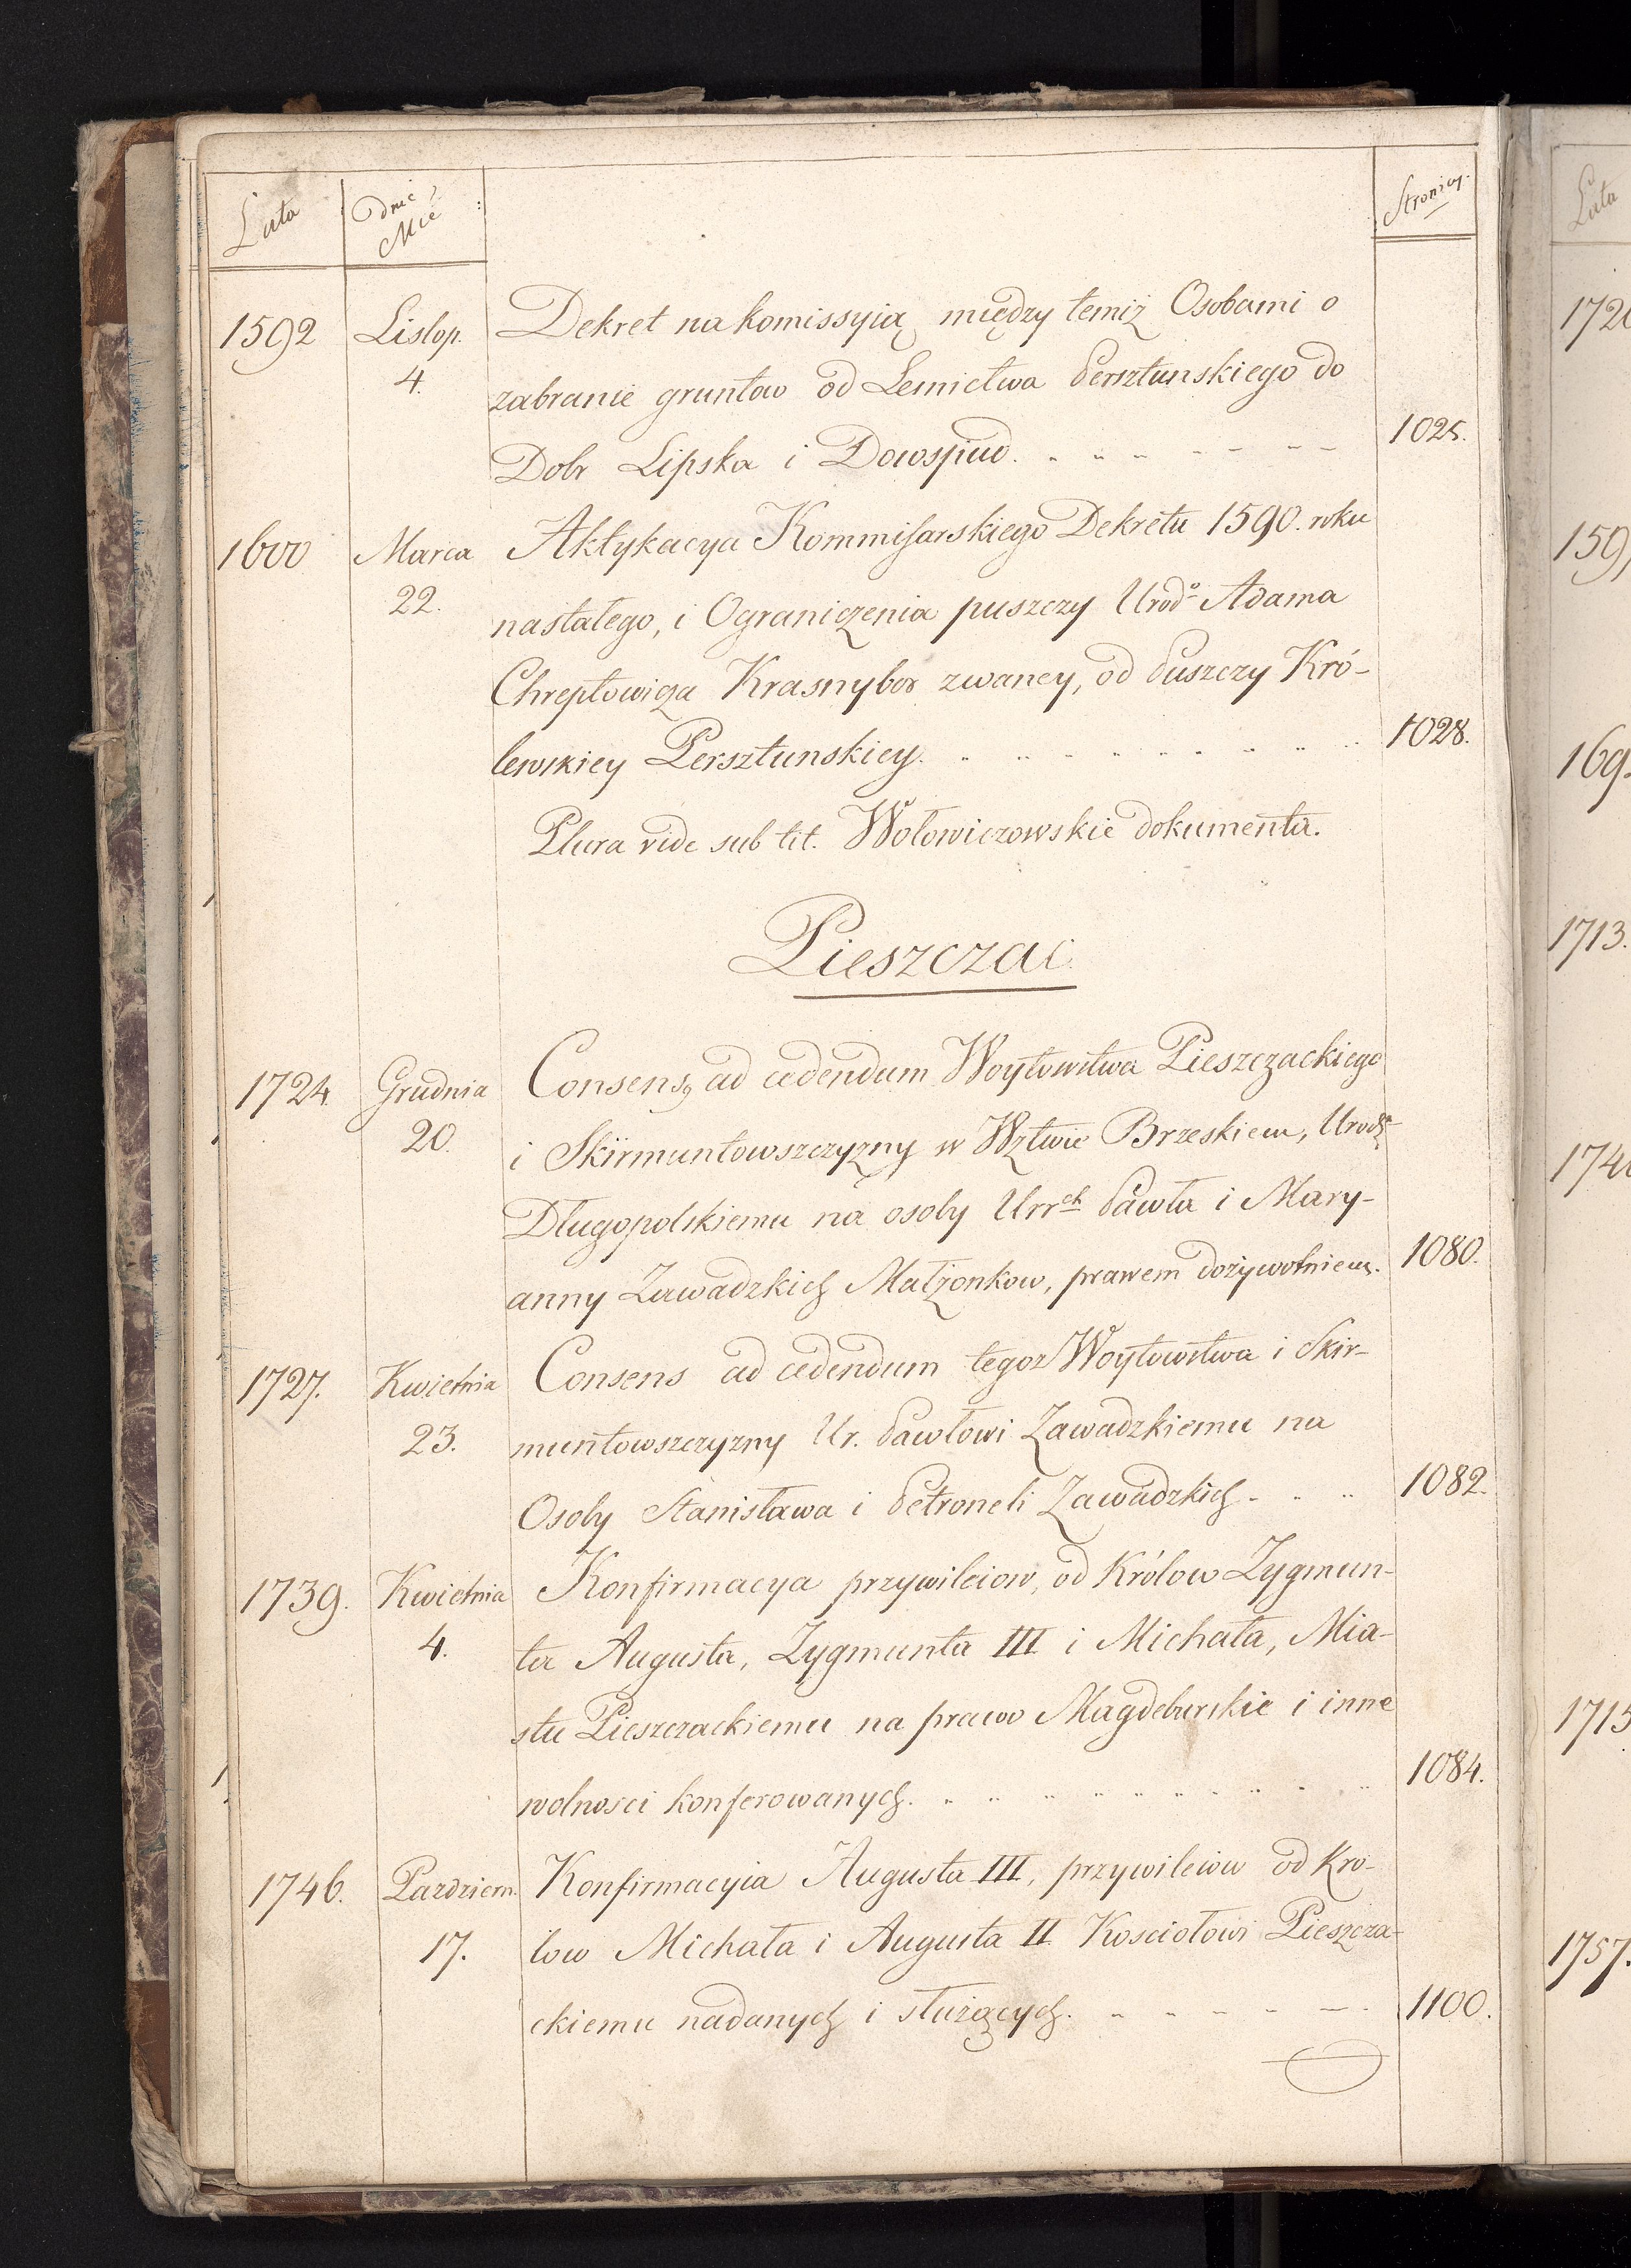 Lata
Dnie i
Mie:
Stronicy.
1592 Listop. Dekret na komissyią między temiż Osobami o
4. zabranie gruntow od Lesnictwa Persztunskiego do
Dobr Lipska i Dowspiud. 1025.
1600 Marca Aktykacya Kommissarskiego Dekretu 1590. roku
22. nastałego, i Ograniczenia puszczy Urod° Adama
Chreptowicza Krasnybor zwaney, od Puszczy Kró-
lewskiey Persztunskiey. 1028.
Plura vide sub tit. Wołowiczowskie dokumenta.
Pieszczac.
1724. Grudnia Consens, ad cedendum Woytowstwa Pieszczackiego
20. i Skirmuntowszczyzny w Wztwie Brzeskiem, Urodz
Długopolskiemu na osoby Urrch Pawła i Mary-
anny Zawadzkich Małżonkow, prawem dożywotniem. 1080.
1727. Kwietnia Consens ad cedendum tegoz Woytowstwa i Skir-
23. muntowszczyzny Ur. Pawłowi Zawadzkiemu na
Osoby Stanisława i Petroneli Zawadzkich 1082.
1739. Kwietnia Konfirmacya przywileiow, od Królow Zygmun-
4. ta Augusta, Zygmunta III i Michała, Mia-
stu Pieszczackiemu na prawo Magdeburskie i inne
wolnosci konferowanych. 1084.
1746. Pazdziern. Konfirmacyia Augusta III, przywileiow od Kro-
17. low Michała i Augusta II Kosciołowi Pieszcza-
ckiemu nadanych i służących. 1100.
Lata
172
159
169
1713.
174
1715
1757.